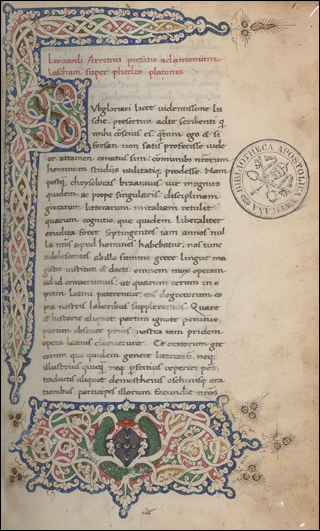 Leonardi Arretini prefatio ad antonium
luschum super phedro platonis
Vbgloriari licet uidentissime lu
sche. presertim ad te scribenti q
mihi conscius
forsan non satis profecisse uide
or attamen conatus sim communibus nrorum
hominum studiis utilitatiq; prodesse. Nam
postq chrysoloras bizantius uir magnus
quidem ac prope singularis disciplinam
grecarum litterarum in italiam retulit
quarum cognitio que quidem liberaliter
erudita foret septingentos iam annos nul
la apud homines habebatur, nos tunc
adolescentes ab illo summo grece lingue ma
gistro instituti & docti: omnem mox operam
ad id conuertimus, ut quarum rerum in o
piam latini paterentur, ex grecorum co
pia nostris laboribus supplerentur. Quare
& historie aliquot partim ignote penitus,
partim obscure prius: nostra iam pridem
opera latinis Et oratorum gre
corum quo quidem genere litterarum neq;
illustrius neq; perfectius reperiri pot
traductis aliquot demosthenis eschinisq; ora
tionibus principes illorum facundie uiros
BIBLIOTHECA APOSTOLICA VATICANA